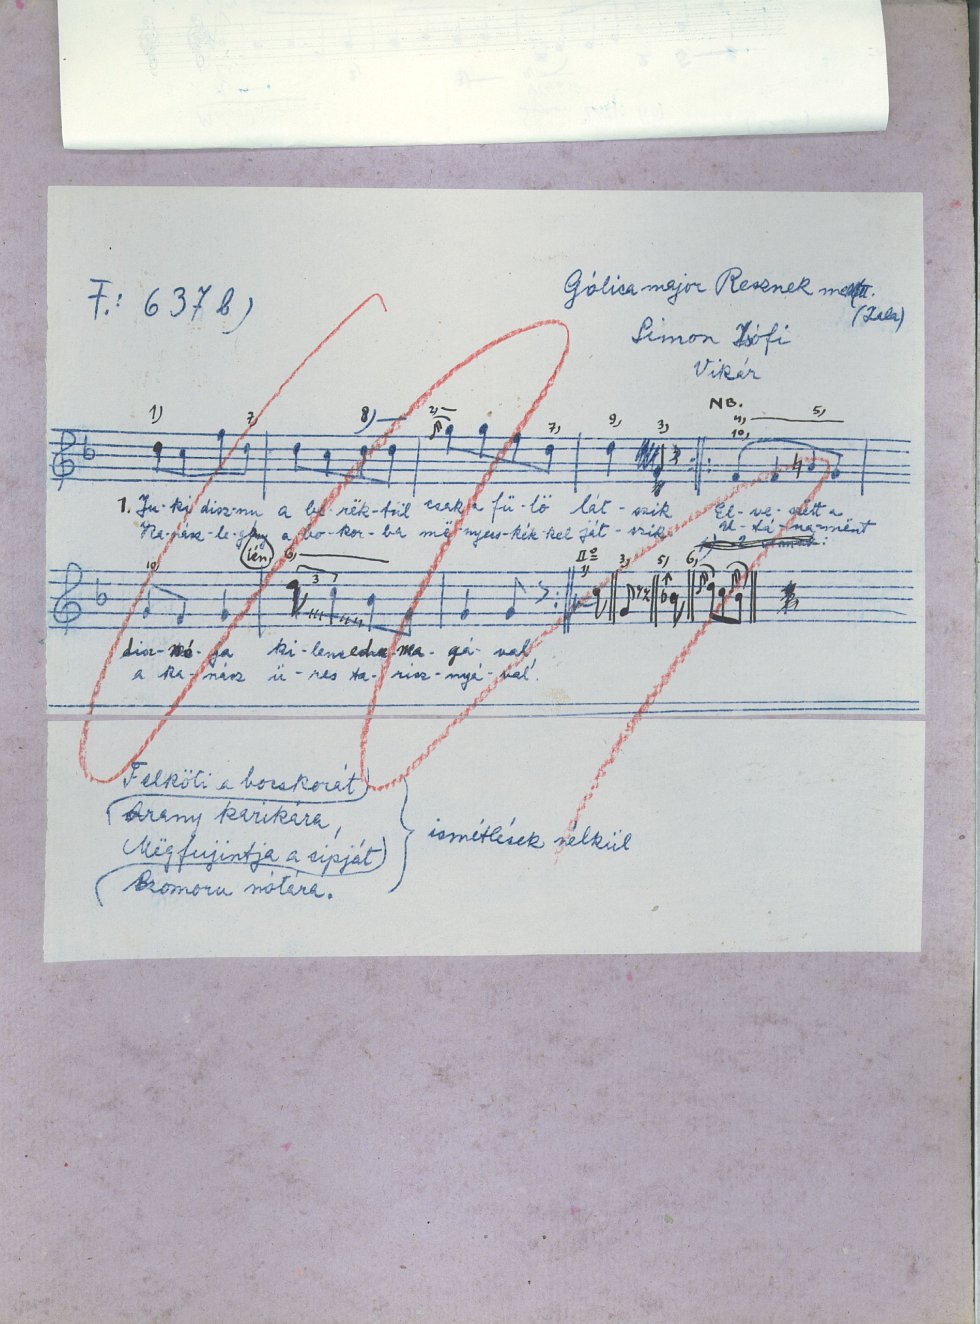 F.: 637 b)
Gólica major Resznek mell.
(Zala)
Simon Zsófi
Vikár
NB.
1) 7) 8) 2) 7) 9) 3) 4) 5)
10)
1. Ju-ki disz-nu a be-rëk-tül csak a fü-lö lát-szik El-ve-szëtt a
Ka-nász-le-gény a bo-kor-ba më-nyecs-kék-kel ját-szik U-tá-na mënt
(ién)
10) 6) 3 IIº 1) 3) 5) 6)
disz-nó-ja ki-lenced-ma-gá-val
a ka-nász ü-res ta-risz-nyá-val.
Felköti a bocskorát
Arany karikára,
Mëgfujintja a sípját
Szomoru nótára.
ismétlések nélkül